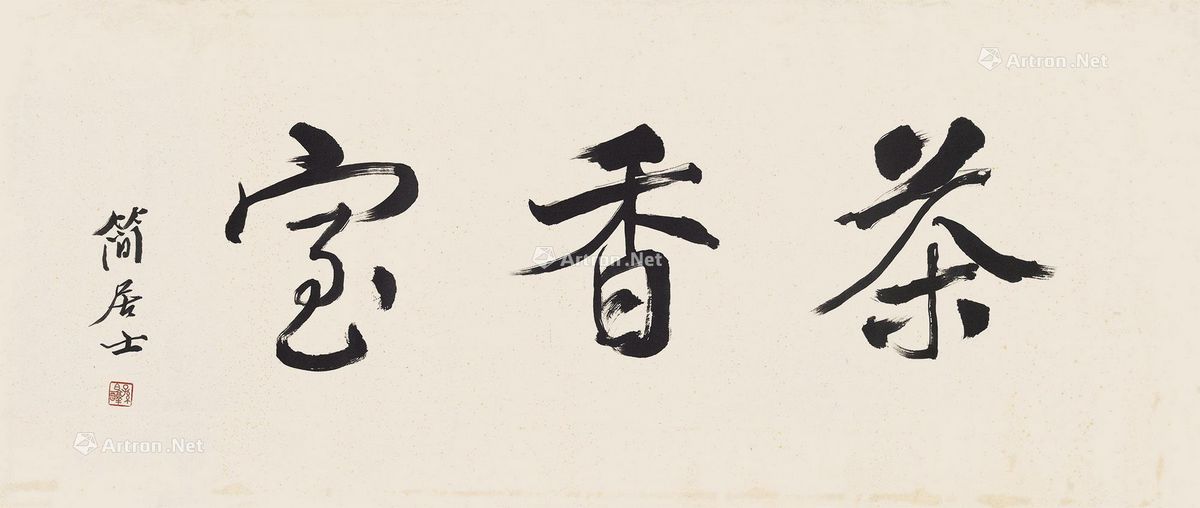 茶香室
簡居士
Artron.Net
Artron.Net
Artron.Net